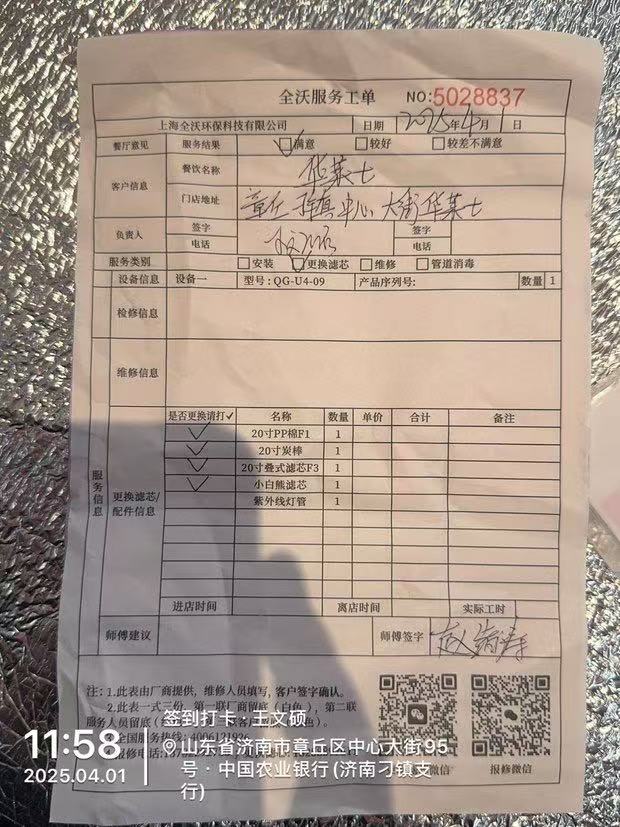 全沃服务工单 NO:5028837
上海全沃环保科技有限公司 日期 2025年4月1日
餐厅意见 服务结果 ☑满意 □较好 □较差不满意
客户信息 餐饮名称 华莱士
门店地址 章丘 中心大街华莱士
负责人 签字 签字
电话 电话
服务类别 □安装 ☑更换滤芯 □维修 □管道消毒
设备信息 设备一 型号:QG-U4-09 产品序列号: 数量 1
检修信息
维修信息
服务信息
更换滤芯/配件信息
是否更换请打✓ 名称 数量 单价 合计 备注
✓ 20寸PP棉F1 1
✓ 20寸炭棒 1
✓ 20寸叠式滤芯F3 1
✓ 小白熊滤芯 1
紫外线灯管 1
进店时间 离店时间 实际工时
师傅建议 师傅签字
注:1.此表由厂商提供,维修人员填写,客户签字确认。
2.此表一式三份,第一联厂商留底(白色),第二联
服务人员留底(
全国服务热线:4006121926
报修电话:13
微信 报修微信
签到打卡:王文硕
11:58
2025.04.01
山东省济南市章丘区中心大街95
号·中国农业银行(济南刁镇支
行)